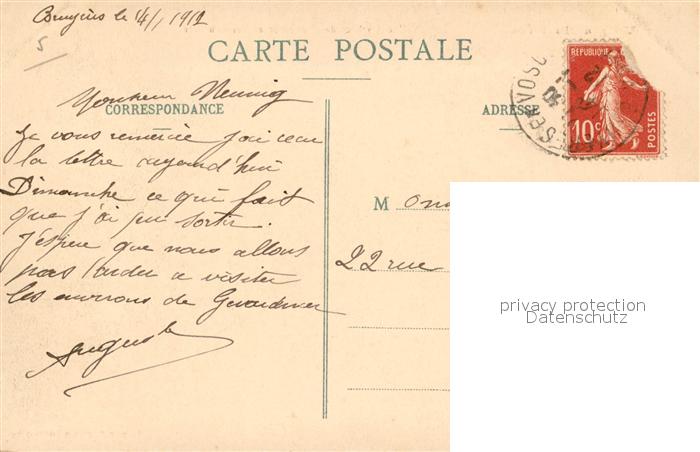 Bruyères le 14/1 1912
5
CARTE POSTALE
Monsieur
CORRESPONDANCE
Je vous remercie j'ai recu
la lettre aujourd'hui
Dimanche ce qui fait
que j'ai pu sortir.
J'espere que nous allons
pas tarder a visiter
les environs de Gerardmer
Auguste
ADRESSE
M
22 rue
REPUBLIQUE
10c
POSTES
VOSGES
privacy protection
Datenschutz